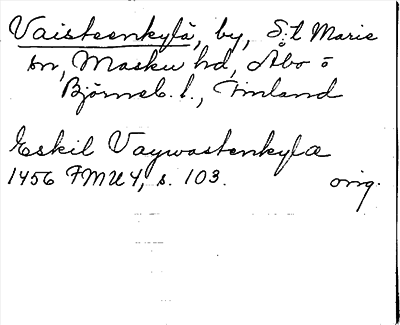 Vaisteenkylä, by, S:t Marie
sn, Masku hd, Åbo o
Björneb. l., Finland
Eskil Vaywastenkylæ
1456 FMU 4, s. 103. orig.